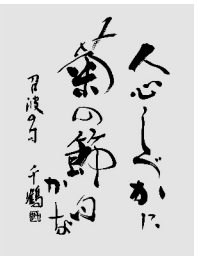 人心しづかに
菊の節句
かな
召波の句 千鶴